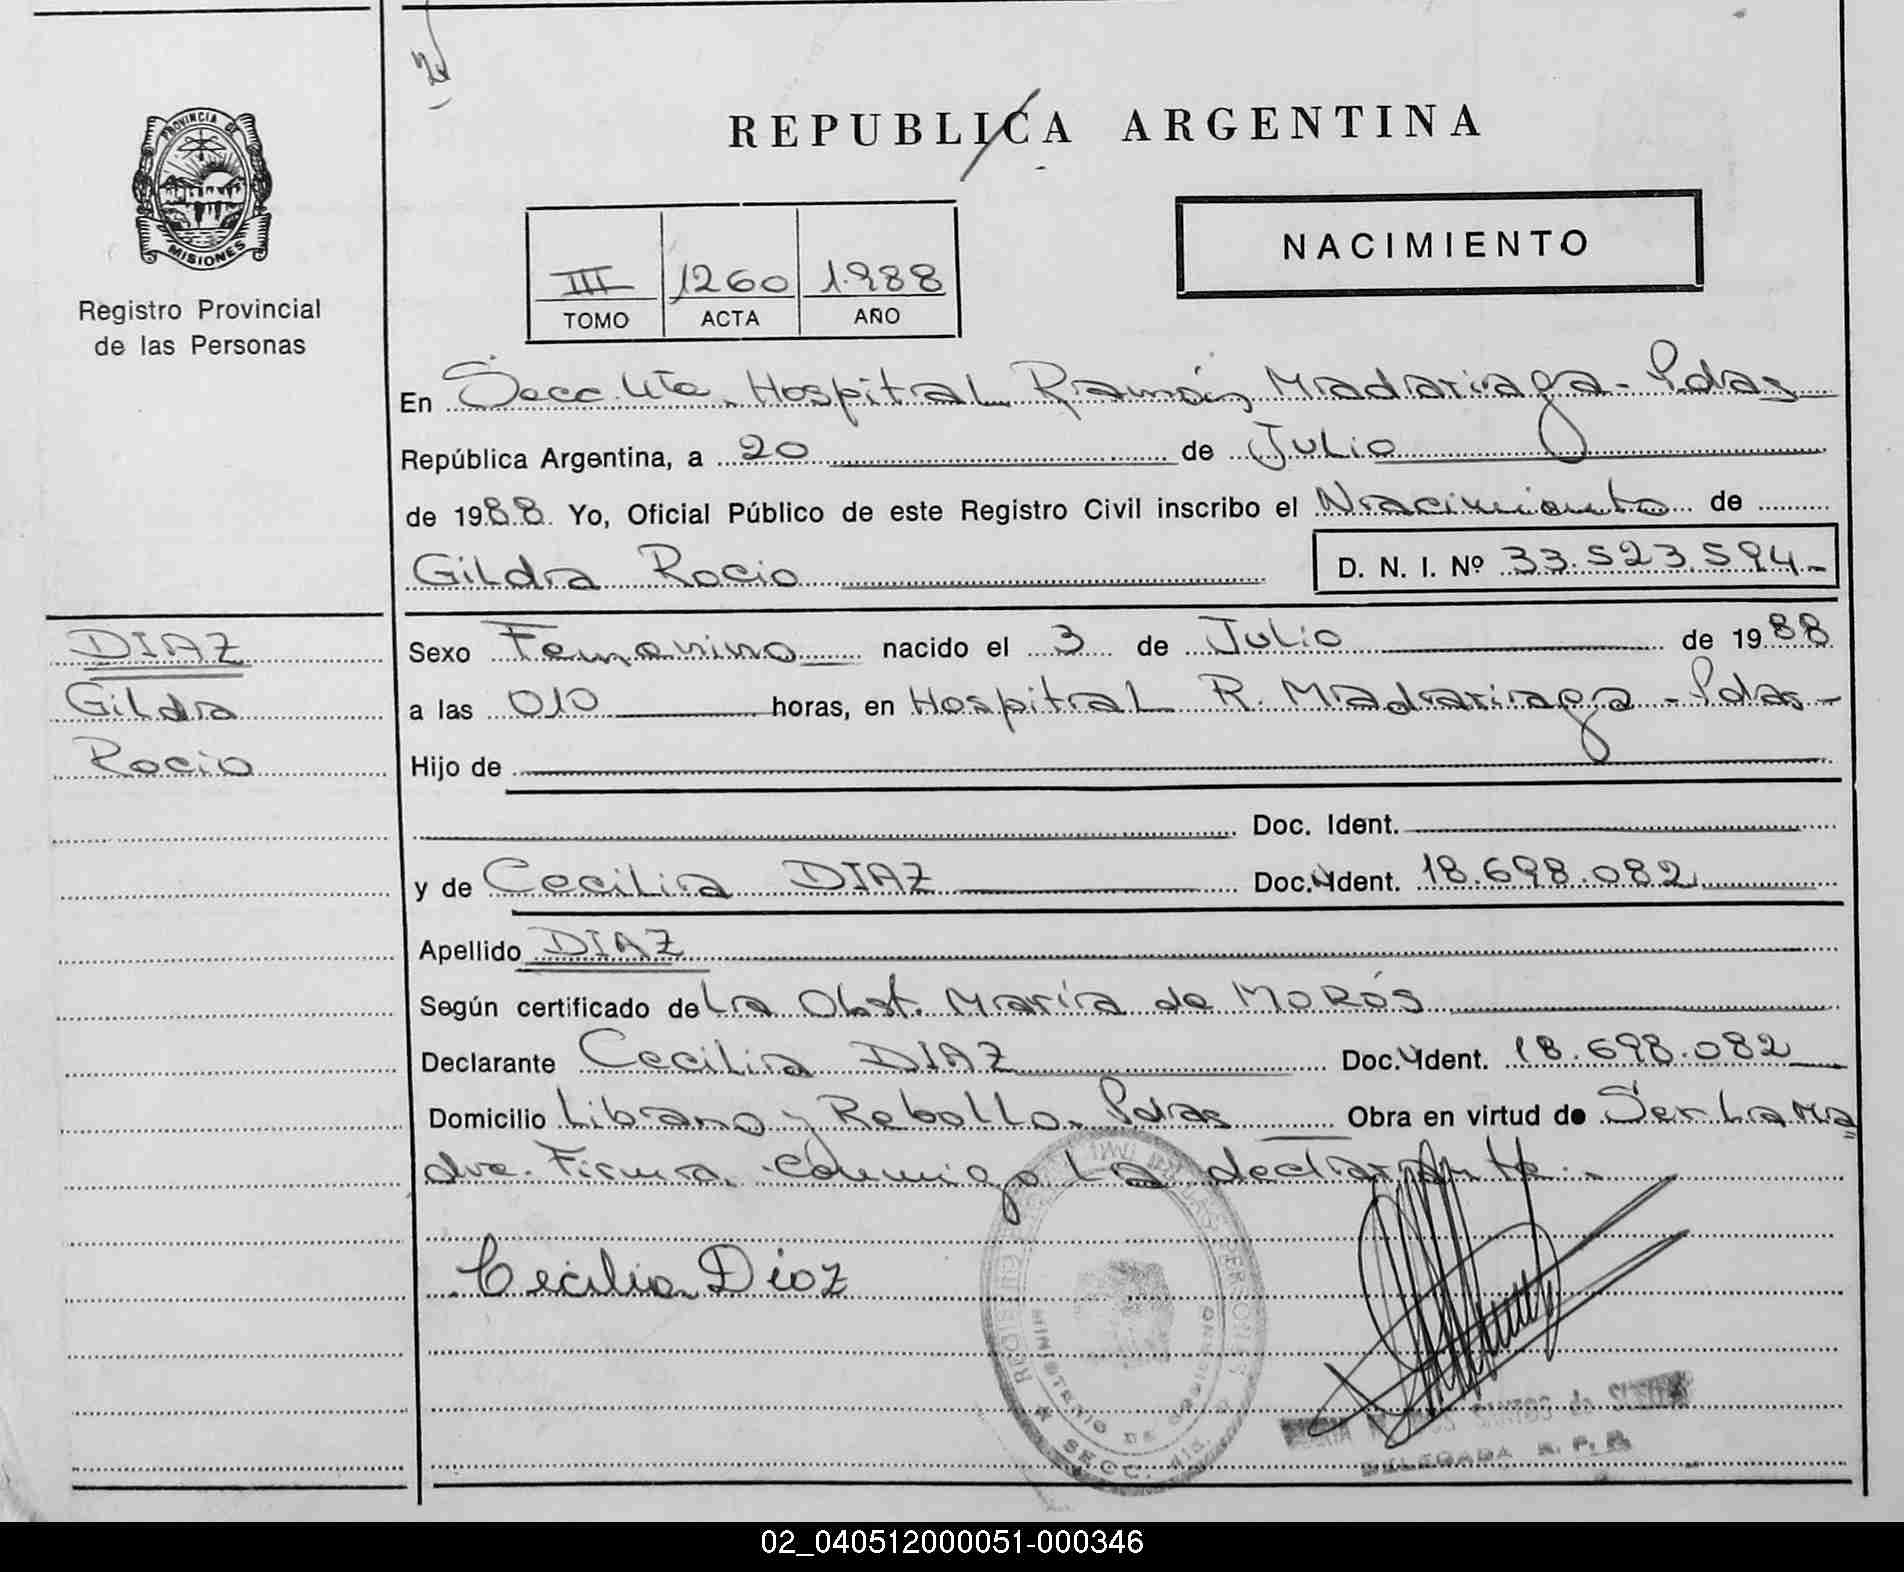 REPUBLICA ARGENTINA
PROVINCIA DE
MISIONES
Registro Provincial
de las Personas
NACIMIENTO
III 1260 1.988
TOMO ACTA AÑO
En Secc. 4ta. Hospital Ramón Madariaga - Pdas
República Argentina, a 20 de Julio
de 1988. Yo, Oficial Público de este Registro Civil inscribo el Nacimiento de
Gilda Rocio D. N. I. Nº 33.523.594
DIAZ
Gilda
Rocio
Sexo Femenino nacido el 3 de Julio de 1988
a las 010 horas, en Hospital R. Madariaga - Pdas -
Hijo de
Doc. Ident.
y de Cecilia DIAZ Doc. Ident. 18.698.082
Apellido DIAZ
Según certificado de La Obst. María de MoRós
Declarante Cecilia DIAZ Doc. Ident. 18.698.082
Domicilio Libano y Rebollo. Pdas Obra en virtud de Ser La Ma=
dre. Firma conmigo La declarante.
Cecilia Diaz
REGISTRO DE LAS PERSONAS
MINISTERIO DE GOBIERNO
SECC. 4ta.
SANTOS de
DELEGADA R. P. P.
02_040512000051-000346